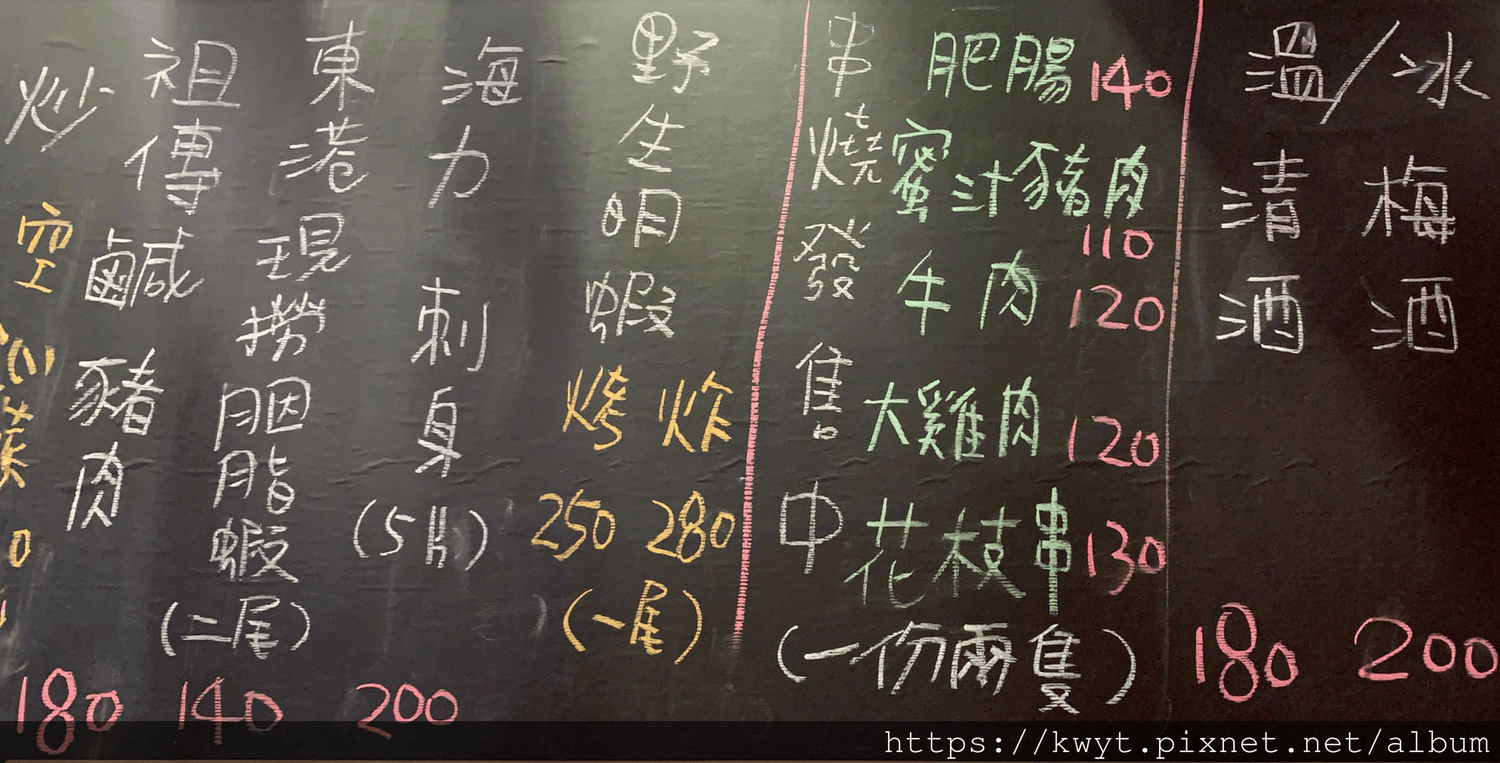 溫/冰
梅酒 200
清酒 180
串燒發售中
肥腸 140
蜜汁豬肉 110
牛肉 120
大雞肉 120
花枝串 130
(一份兩隻)
野生明蝦
烤 炸
250 280
(一尾)
海力刺身(5片) 200
東港現撈胭脂蝦(二尾) 140
祖傳鹹豬肉 180
炒
空心菜
0
https://kwyt.pixnet.net/album